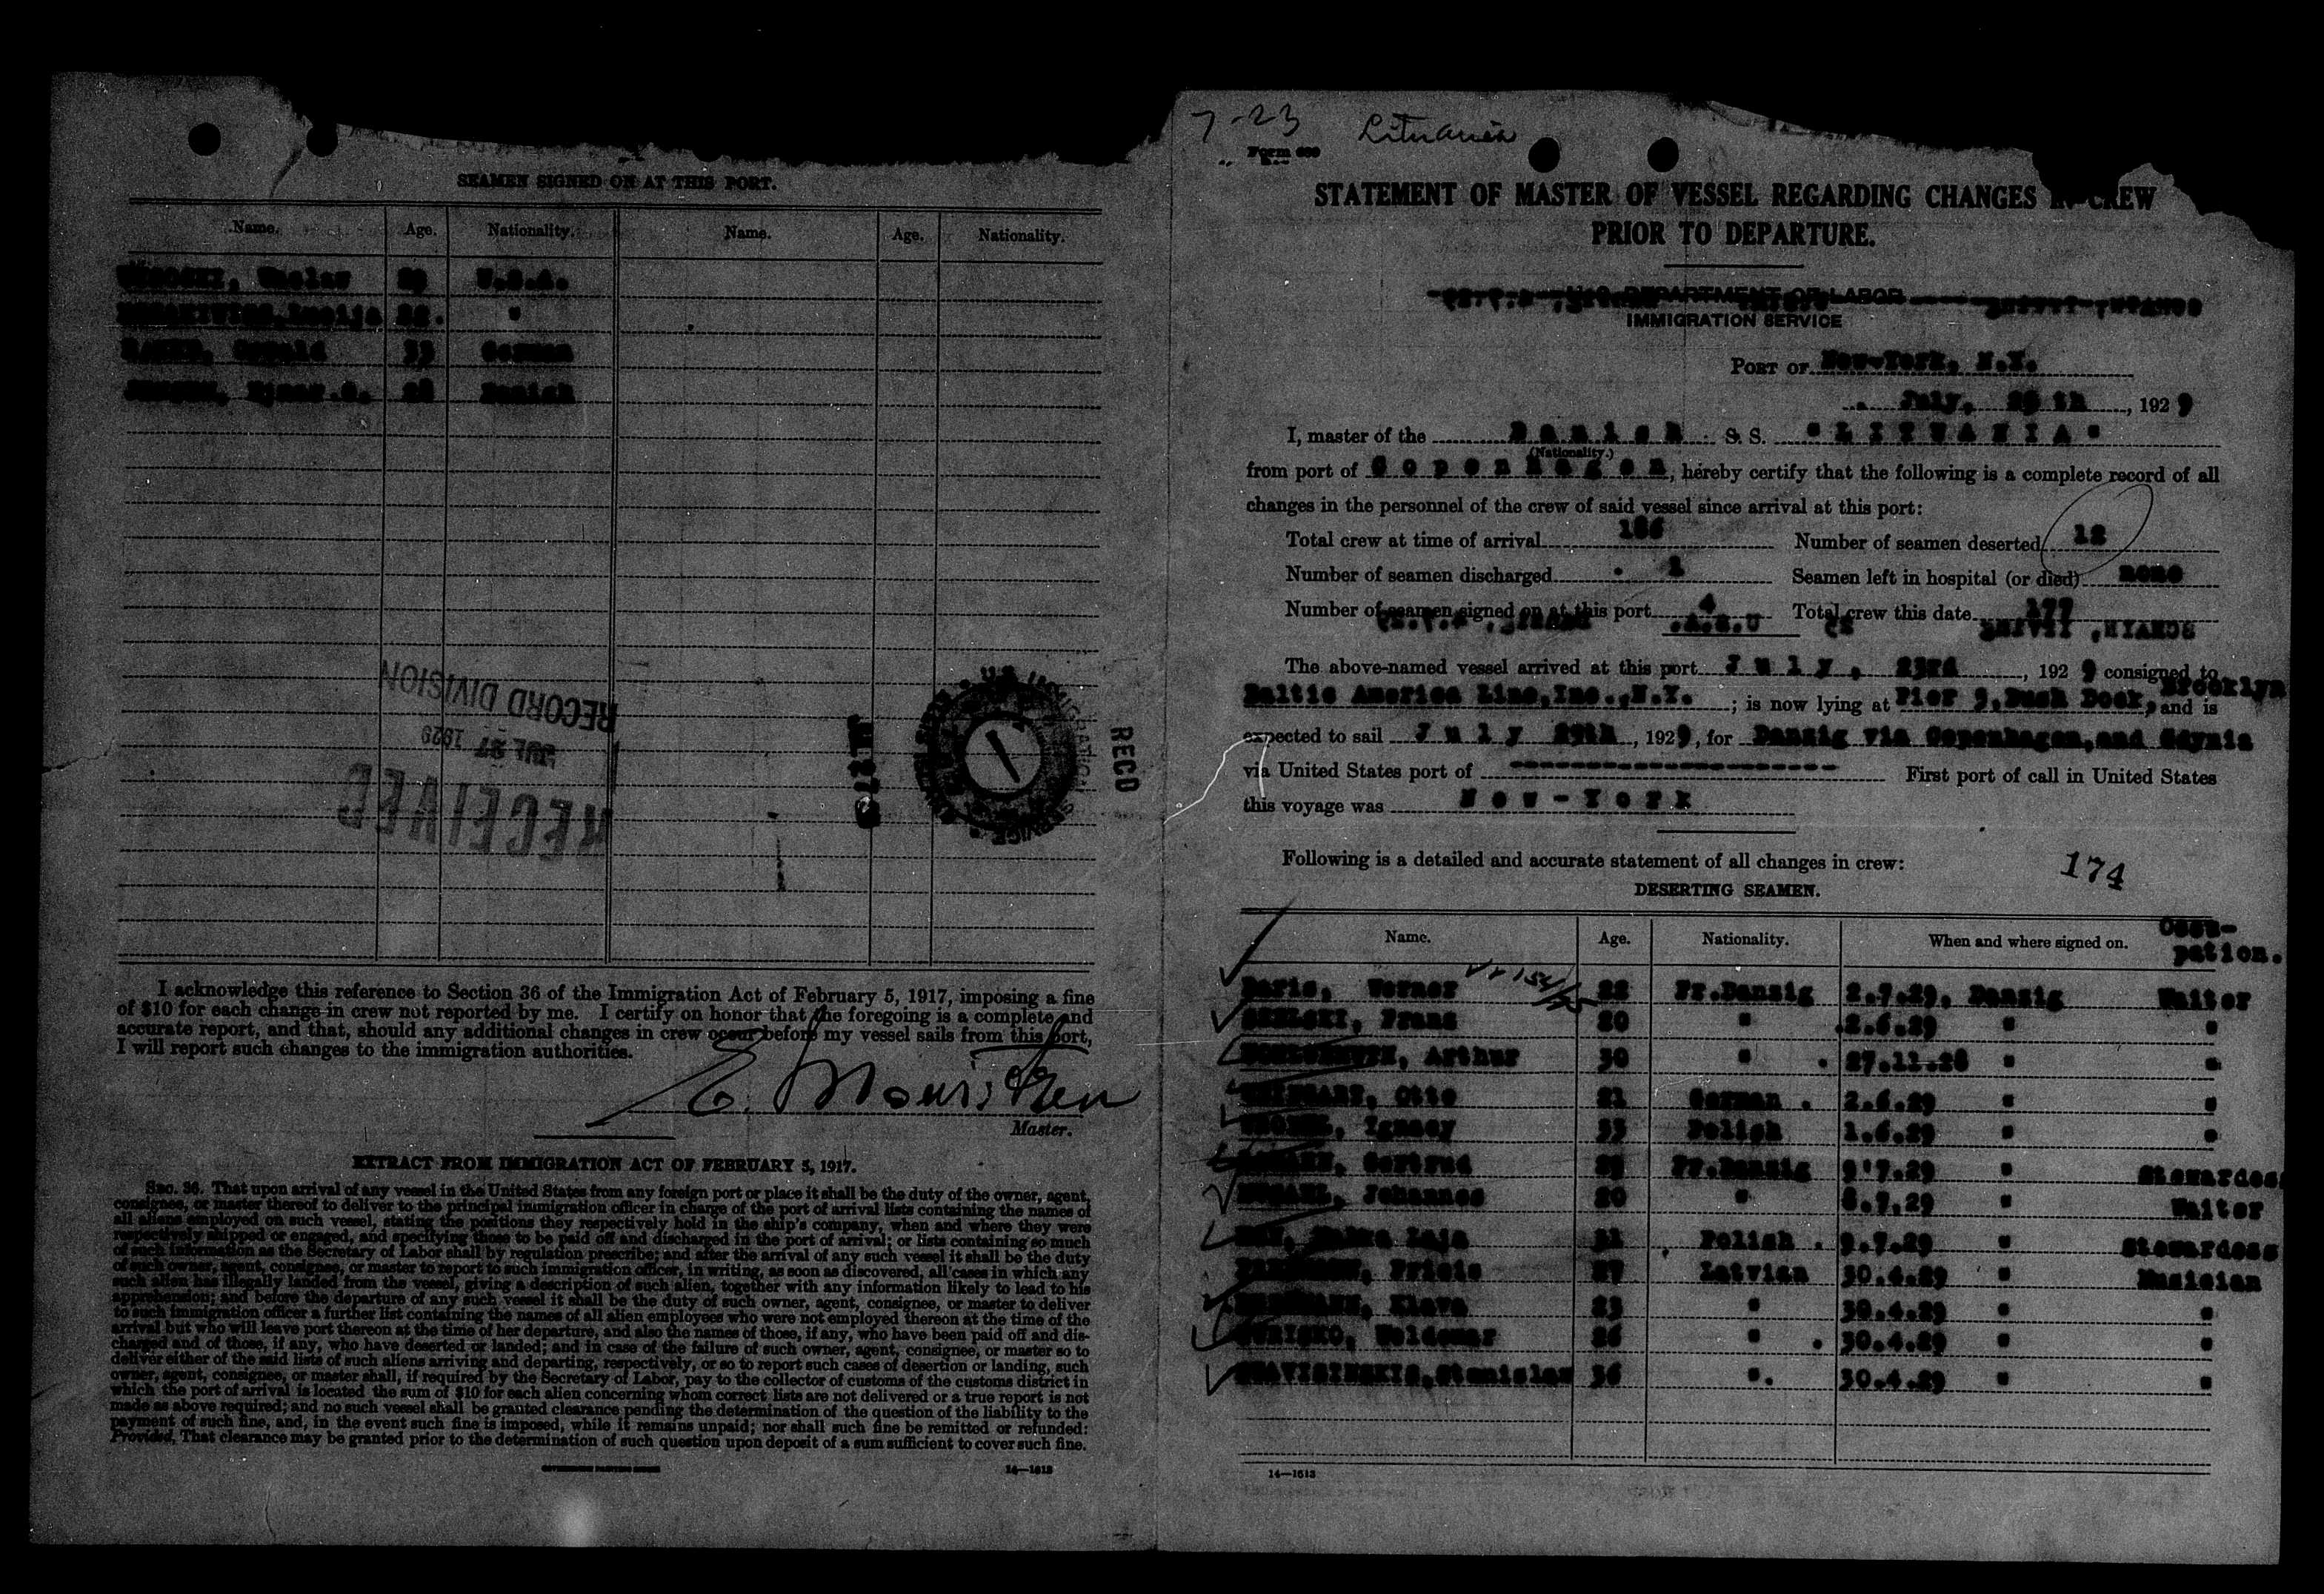 SEAMEN SIGNED ON AT THIS PORT.
Name. Age. Nationality. Name. Age. Nationality.
29 U.S.A.
"
33 German
28 Danish
RECORD DIVISION
JUL 27 1929
RECEIVED
RECD
I acknowledge this reference to Section 36 of the Immigration Act of February 5, 1917, imposing a fine
of $10 for each change in crew not reported by me. I certify on honor that the foregoing is a complete and
accurate report, and that, should any additional changes in crew occur before my vessel sails from this port,
I will report such changes to the immigration authorities.
E. Mouritzen
Master.
EXTRACT FROM IMMIGRATION ACT OF FEBRUARY 5, 1917.
Sec. 36. That upon arrival of any vessel in the United States from any foreign port or place it shall be the duty of the owner, agent,
consignee, or master thereof to deliver to the principal immigration officer in charge of the port of arrival lists containing the names of
all aliens employed on such vessel, stating the positions they respectively hold in the ship's company, when and where they were
respectively shipped or engaged, and specifying those to be paid off and discharged in the port of arrival; or lists containing so much
of such information as the Secretary of Labor shall by regulation prescribe; and after the arrival of any such vessel it shall be the duty
of such owner, agent, consignee, or master to report to such immigration officer, in writing, as soon as discovered, all cases in which any
such alien has illegally landed from the vessel, giving a description of such alien, together with any information likely to lead to his
apprehension; and before the departure of any such vessel it shall be the duty of such owner, agent, consignee, or master to deliver
to such immigration officer a further list containing the names of all alien employees who were not employed thereon at the time of the
arrival but who will leave port thereon at the time of her departure, and also the names of those, if any, who have been paid off and dis-
charged and of those, if any, who have deserted or landed; and in case of the failure of such owner, agent, consignee, or master so to
deliver either of the said lists of such aliens arriving and departing, respectively, or so to report such cases of desertion or landing, such
owner, agent, consignee, or master shall, if required by the Secretary of Labor, pay to the collector of customs of the customs district in
which the port of arrival is located the sum of $10 for each alien concerning whom correct lists are not delivered or a true report is not
made as above required; and no such vessel shall be granted clearance pending the determination of the question of the liability to the
payment of such fine, and, in the event such fine is imposed, while it remains unpaid; nor shall such fine be remitted or refunded:
Provided, That clearance may be granted prior to the determination of such question upon deposit of a sum sufficient to cover such fine.
14—1613
7-23 Lituania
Form 689
STATEMENT OF MASTER OF VESSEL REGARDING CHANGES IN CREW
PRIOR TO DEPARTURE.
U. S. DEPARTMENT OF LABOR
IMMIGRATION SERVICE
Port of New-York, N.Y.
July, th, 1929
I, master of the Danish S. S. "LITUANIA"
(Nationality.)
from port of Copenhagen, hereby certify that the following is a complete record of all
changes in the personnel of the crew of said vessel since arrival at this port:
Total crew at time of arrival 186 Number of seamen deserted 12
Number of seamen discharged 1 Seamen left in hospital (or died) none
Number of seamen signed on at this port 4 Total crew this date 177
The above-named vessel arrived at this port July, 23rd, 1929 consigned to
Baltic America Line, Inc., N.Y.; is now lying at Pier 9, Bush Dock, Brooklyn and is
expected to sail July 29th, 1929, for Danzig via Copenhagen, and Gdynia
via United States port of -------------------- First port of call in United States
this voyage was New-York
Following is a detailed and accurate statement of all changes in crew:
174
DESERTING SEAMEN.
Name. Age. Nationality. When and where signed on. Occu-
pation.
Werner 22 Fr.Danzig 2.7.29, Danzig Waiter
Franz 20 " 2.6.29 " "
Arthur 30 " 27.11.28 " "
Otto 21 German 2.6.29 " "
Ignacy 33 Polish 1.6.29 " "
Gertrud 29 Fr.Danzig 9.7.29 " Stewardess
Johannes 20 " 8.7.29 " Waiter
Laja 21 Polish 9.7.29 " Stewardess
27 Latvian 30.4.29 " Musician
23 " 30.4.29 " "
Woldemar 26 " 30.4.29 " "
Stanislav 36 " 30.4.29 " "
14—1613